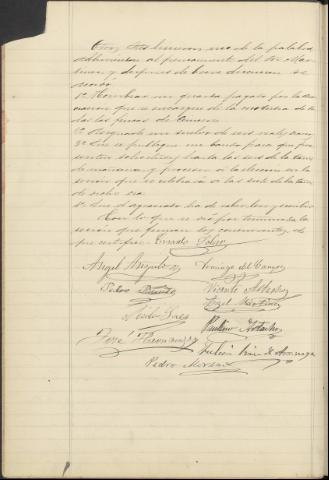 Otros tres hicieron uso de la palabra
adhiriendose al pensamiento del Sr. Mar
tinez y despues de breve discusion se
acordó
1º Nombrar un guarda pagado por la
que se encargue de la custodia de to
das las fincas de
2º Asignarle un sueldo de seis reales
3º Que se publique un bando para que pre
senten solicitudes hasta las seis de la tarde
de mañana y proceder á la eleccion en la
sesion que se celebrará á las siete de la tarde
de dicho dia
4º Que el agraciado ha de saber leer y escribir
Con lo que se dió por terminada la
sesion que firman los concurrentes de
que certifico. Ernesto
Angel Angulo Domingo del Campo
Pedro Vicente
Angel Martinez
Saez Paulino
José Hernandez Julián de
Pedro Moreno